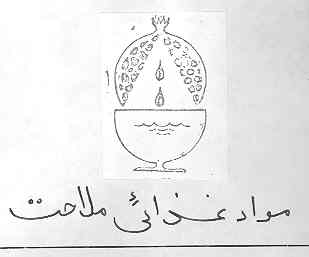 مواد غذائی ملاحت